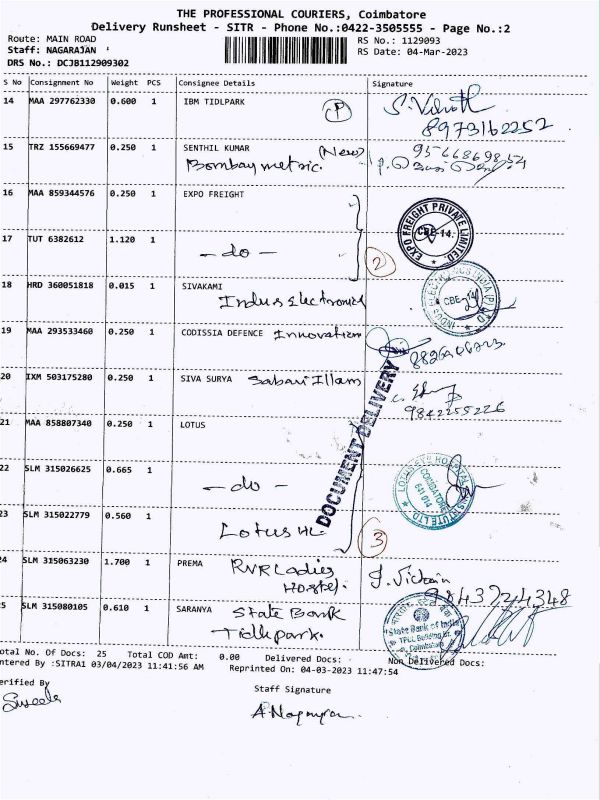 THE PROFESSIONAL COURIERS, Coimbatore
Delivery Runsheet - SITR - Phone No.:0422-3505555 - Page No.:2
Route: MAIN ROAD
Staff: NAGARAJAN
DRS No.: DCJB112909302
RS No.: 1129093
RS Date: 04-Mar-2023
S No Consignment No Weight PCS Consignee Details Signature
14 MAA 297762330 0.600 1 IBM TIDLPARK P
8973162252
15 TRZ 155669477 0.250 1 SENTHIL KUMAR (New)
Bombay metric.
16 MAA 859344576 0.250 1 EXPO FREIGHT
EXPO FREIGHT PRIVATE LIMITED. CBE-14.
17 TUT 6382612 1.120 1 -do-
2
18 HRD 360051818 0.015 1 SIVAKAMI
Indus Electronics
CBE
19 MAA 293533460 0.250 1 CODISSIA DEFENCE Innovation
20 IXM 503175280 0.250 1 SIVA SURYA Sabari Illam
9842255226
DOCUMENT DELIVERY
21 MAA 858807340 0.250 1 LOTUS
22 SLM 315026625 0.665 1 -do-
COIMBATORE 641 014
23 SLM 315022779 0.560 1
Lotus
3
24 SLM 315063230 1.700 1 PREMA RVR Ladies
Hostel.
9843724348
25 SLM 315080105 0.610 1 SARANYA State Bank
Tidlpark.
State Bank of India
Coimbatore
otal No. Of Docs: 25 Total COD Amt: 0.00 Delivered Docs: Non Delivered Docs:
ntered By :SITRA1 03/04/2023 11:41:56 AM Reprinted On: 04-03-2023 11:47:54
erified By
Staff Signature